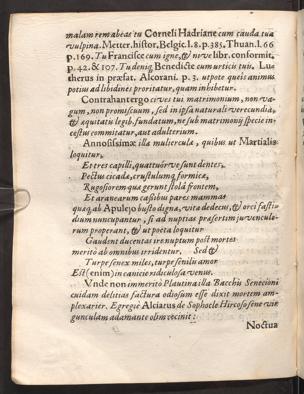 malam rem abeas tu Corneli Hadriane cum cauda tua
vulpina. Metter. histor. Belgic. l. 8. p. 385. Thuan. l. 66
p. 169. Tu Francisce cum igne, & nive libr. conformit.
p. 42. & 107. Tu deniq Benedicte cum urticis tuis. Lu-
therus in præfat. Alcorani. p. 3. utpote queis animus
potius ad libidines proritatur, quam inhibetur.
Contrahant ergo cives tui matrimonium, non va-
gum, non promiscuum, sed in ipsa naturali verecundia,
& æquitatu legib. fundatum, ne sub matrimonij specie in-
cestus commitatur, aut adulterium.
Annosissimæ illa mulierculæ, quibus ut Martialis
loquitur,
Et tres capilli, quattuorve sunt dentes,
Pectus cicadæ, crustulumq formicæ,
Rugosiorem quæ gerunt stolâ frontem,
Et aranearum cassibus pares mammas
quæq ab Apulejo busto dignæ, vitæ dedecus, & orci fasti-
dium nuncupantur, si ad nuptias præsertim juvenculo-
rum properant, & ut poëta loquitur
Gaudent ducentas ire nuptum post mortes
meritò ab omnibus irridentur. Sed &
Turpe senex miles, turpe senilis amor
Est (enim) in canicie ridiculosa venus.
Vnde non immeritò Plautina illa Bacchis Senecioni
cuidam delitias factura odiosum esse dixit mortem am-
plexarier. Egregiè Alciatus de Sophocle Hircoso sene vir-
gunculam adamante olim cecinit:
Noctua